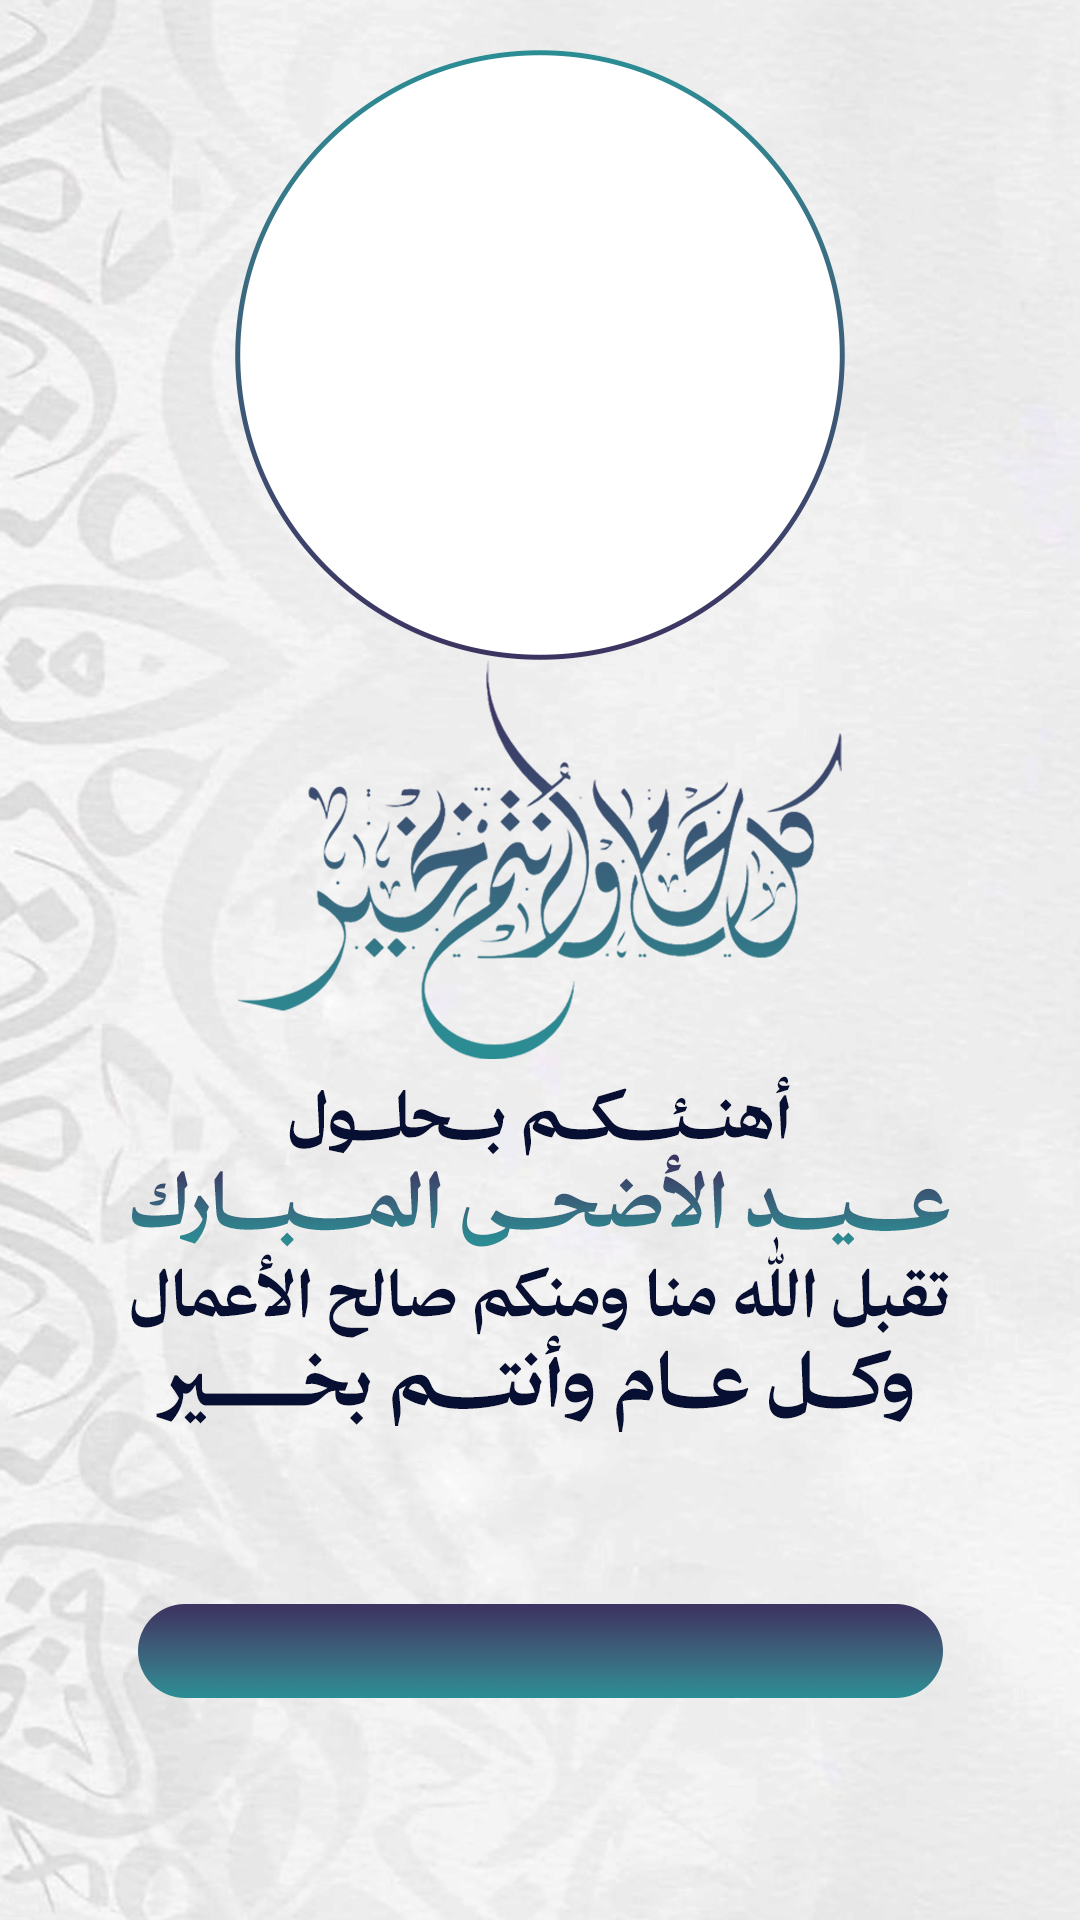 كل عام وأنتم بخير
أهنئكم بحلول
عيد الأضحى المبارك
تقبل الله منا ومنكم صالح الأعمال
وكل عام وأنتم بخير